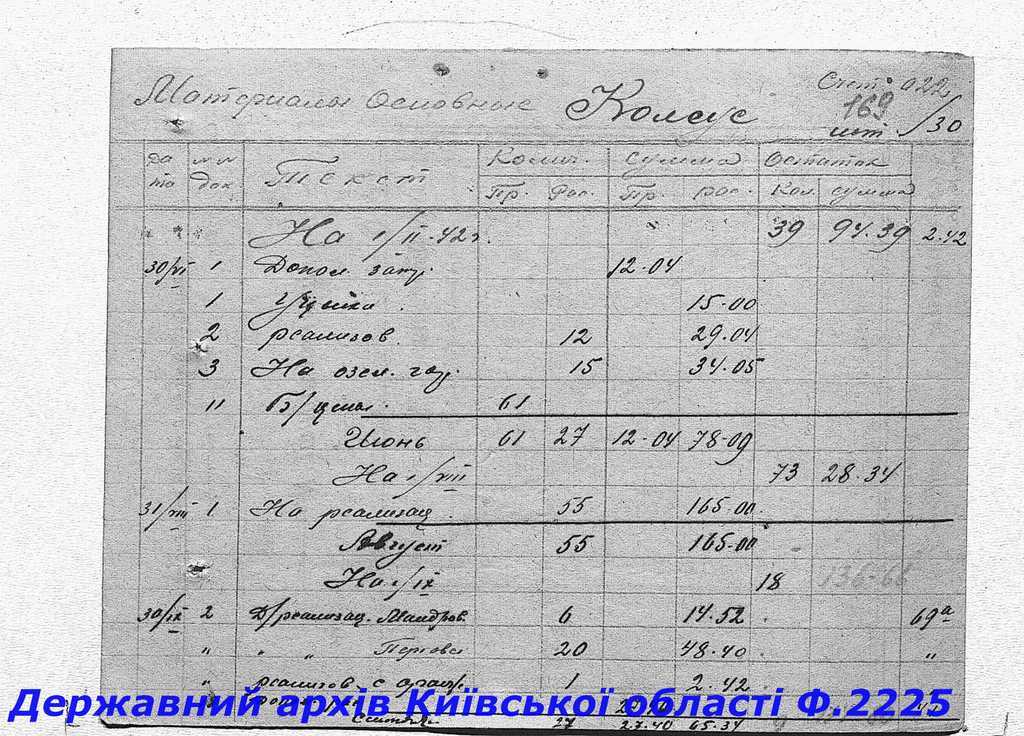 Материалы Основные Колеус Счет 022
169
лист. /30
да та №№ док. Текст Колич. Сумма Остаток
Пр. Рас. Пр. рас. Кол. сумма
" " " На 1/II-42г. 39 94.39 2.42
30/VI 1 Допол. 12-04
1 Уценка. 15-00
2 реализов. 12 29.04
3 На озел. 15 34-05
11 Б/цены. 61
Июнь 61 27 12-04 78-09
На 1/VIII 73 28.34
31/VIII 1 На реализац. 55 165-00.
Август 55 165-00
На 1/IX 18 136-66
30/IX 2 Д/реализац. Мандров. 6 14.52 69а
" " " 20 48.40. "
" реализов. с 1 2.42
27 27.40 65.34
Державний архів Київської області Ф.2225